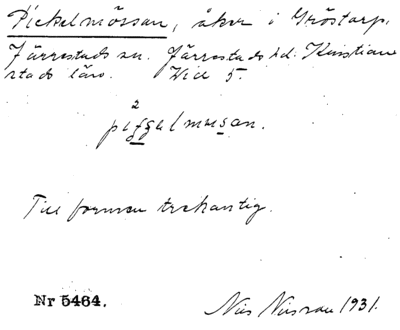 Pickelmössan, åker i Gröstorp,
Järrestads sn. Järrestads hd. Kristian
stads län. Vid 5.
2
piggelmusan.
Till formen trekantig.
Nr 5464. Nils Nilsson 1931.